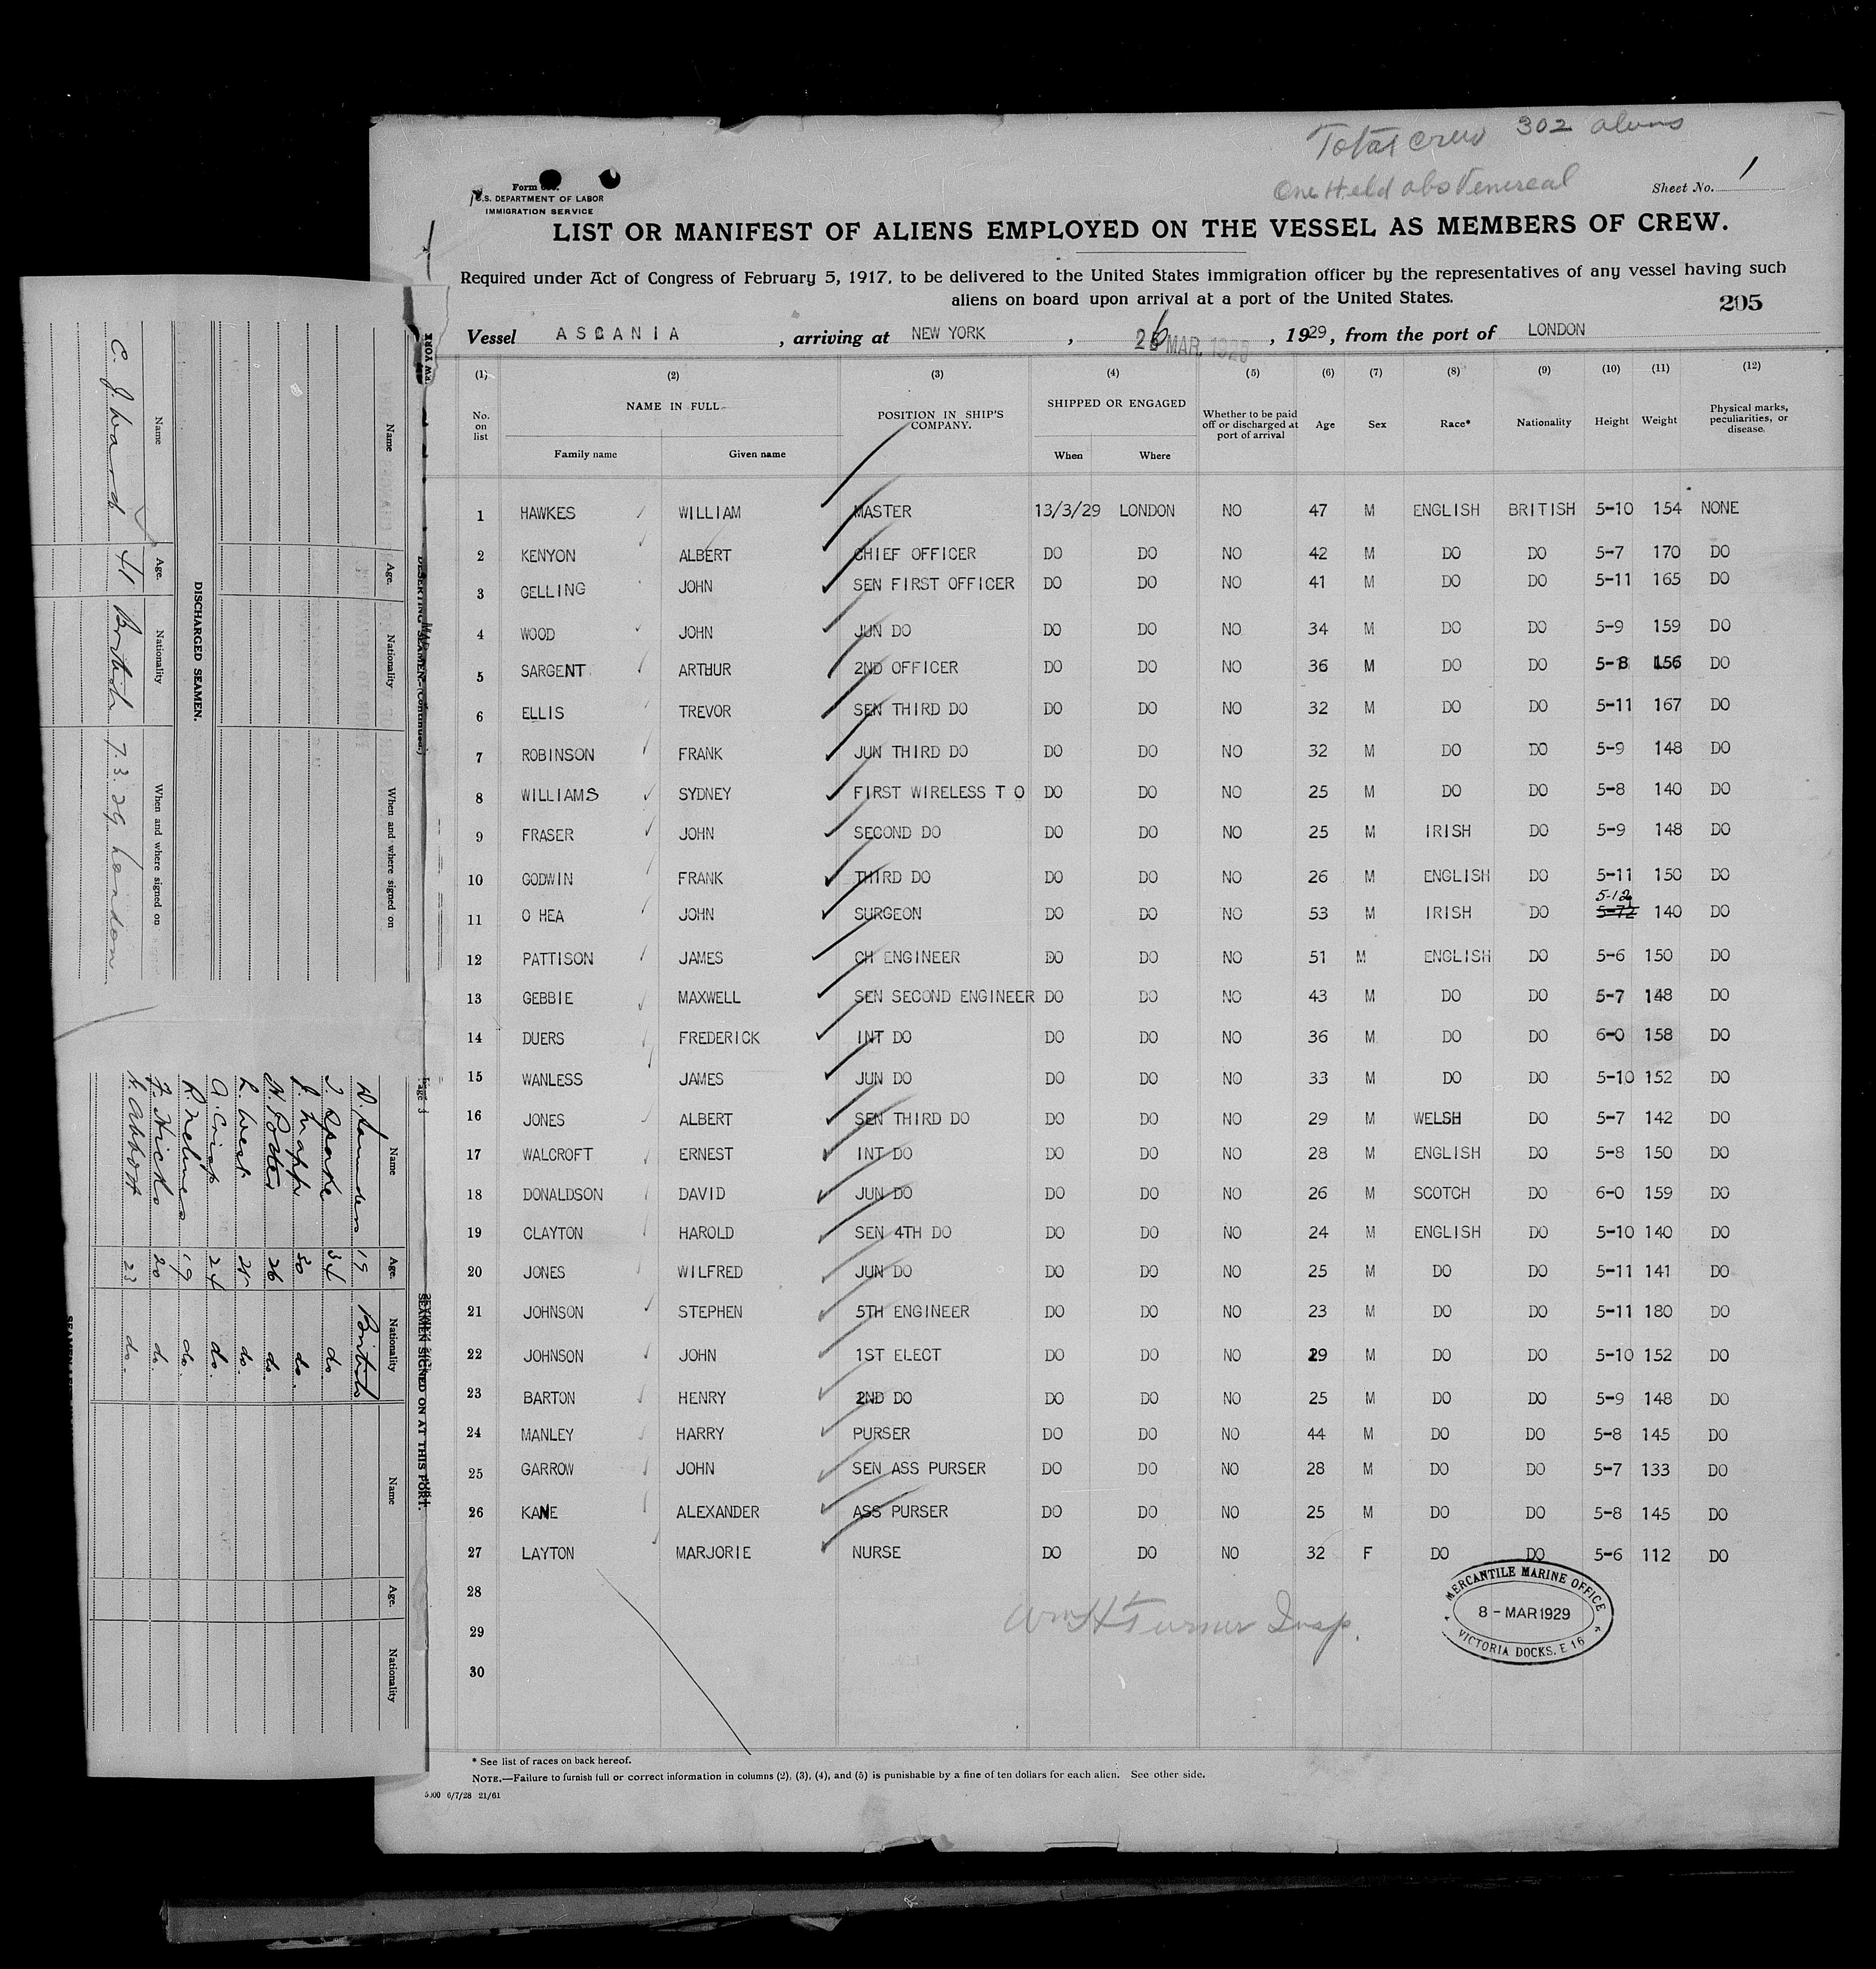 Total Crew 302 aliens
One Held abs Venereal
Form
U.S. DEPARTMENT OF LABOR
IMMIGRATION SERVICE
Sheet No. 1
LIST OR MANIFEST OF ALIENS EMPLOYED ON THE VESSEL AS MEMBERS OF CREW.
Required under Act of Congress of February 5, 1917, to be delivered to the United States immigration officer by the representatives of any vessel having such
aliens on board upon arrival at a port of the United States.
205
Vessel ASCANIA, arriving at NEW YORK, 26 MAR. 1929, 1929, from the port of LONDON
(1) (2) (3) (4) (5) (6) (7) (8) (9) (10) (11) (12)
No. on list NAME IN FULL POSITION IN SHIP'S COMPANY. SHIPPED OR ENGAGED Whether to be paid off or discharged at port of arrival Age Sex Race* Nationality Height Weight Physical marks, peculiarities, or disease.
Family name Given name When Where
1 HAWKES WILLIAM MASTER 13/3/29 LONDON NO 47 M ENGLISH BRITISH 5-10 154 NONE
2 KENYON ALBERT CHIEF OFFICER DO DO NO 42 M DO DO 5-7 170 DO
3 GELLING JOHN SEN FIRST OFFICER DO DO NO 41 M DO DO 5-11 165 DO
4 WOOD JOHN JUN DO DO DO NO 34 M DO DO 5-9 159 DO
5 SARGENT ARTHUR 2ND OFFICER DO DO NO 36 M DO DO 5-8 156 DO
6 ELLIS TREVOR SEN THIRD DO DO DO NO 32 M DO DO 5-11 167 DO
7 ROBINSON FRANK JUN THIRD DO DO DO NO 32 M DO DO 5-9 148 DO
8 WILLIAMS SYDNEY FIRST WIRELESS T O DO DO NO 25 M DO DO 5-8 140 DO
9 FRASER JOHN SECOND DO DO DO NO 25 M IRISH DO 5-9 148 DO
10 GODWIN FRANK THIRD DO DO DO NO 26 M ENGLISH DO 5-11 150 DO
11 O HEA JOHN SURGEON DO DO NO 53 M IRISH DO 140 DO
12 PATTISON JAMES CH ENGINEER DO DO NO 51 M ENGLISH DO 5-6 150 DO
13 GEBBIE MAXWELL SEN SECOND ENGINEER DO DO NO 43 M DO DO 5-7 148 DO
14 DUERS FREDERICK INT DO DO DO NO 36 M DO DO 6-0 158 DO
15 WANLESS JAMES JUN DO DO DO NO 33 M DO DO 5-10 152 DO
16 JONES ALBERT SEN THIRD DO DO DO NO 29 M WELSH DO 5-7 142 DO
17 WALCROFT ERNEST INT DO DO DO NO 28 M ENGLISH DO 5-8 150 DO
18 DONALDSON DAVID JUN DO DO DO NO 26 M SCOTCH DO 6-0 159 DO
19 CLAYTON HAROLD SEN 4TH DO DO DO NO 24 M ENGLISH DO 5-10 140 DO
20 JONES WILFRED JUN DO DO DO NO 25 M DO DO 5-11 141 DO
21 JOHNSON STEPHEN 5TH ENGINEER DO DO NO 23 M DO DO 5-11 180 DO
22 JOHNSON JOHN 1ST ELECT DO DO NO 29 M DO DO 5-10 152 DO
23 BARTON HENRY 2ND DO DO DO NO 25 M DO DO 5-9 148 DO
24 MANLEY HARRY PURSER DO DO NO 44 M DO DO 5-8 145 DO
25 GARROW JOHN SEN ASS PURSER DO DO NO 28 M DO DO 5-7 133 DO
26 KANE ALEXANDER ASS PURSER DO DO NO 25 M DO DO 5-8 145 DO
27 LAYTON MARJORIE NURSE DO DO NO 32 F DO DO 5-6 112 DO
28
29
30
Wm H Turner Insp.
MERCANTILE MARINE OFFICE
8 - MAR 1929
VICTORIA DOCKS, E 16
* See list of races on back hereof.
NOTE.—Failure to furnish full or correct information in columns (2), (3), (4), and (5) is punishable by a fine of ten dollars for each alien. See other side.
6/7/28 21/61
Name Age. Nationality When and where signed on
DISCHARGED SEAMEN.
Name Age. Nationality When and where signed on
C. J. Ward 41 British 7.3.29 London
SEAMEN SIGNED ON AT THIS PORT.
Name Age. Nationality Name Age. Nationality
W. Saunders 19 British
J. Speake 34 do
J. Mapp 30 do.
W. Potter 26 do
L. West 25 do.
A. Crisp 24 do.
R. 19 do.
F. Hicks 20 do
Abbott 23 do.